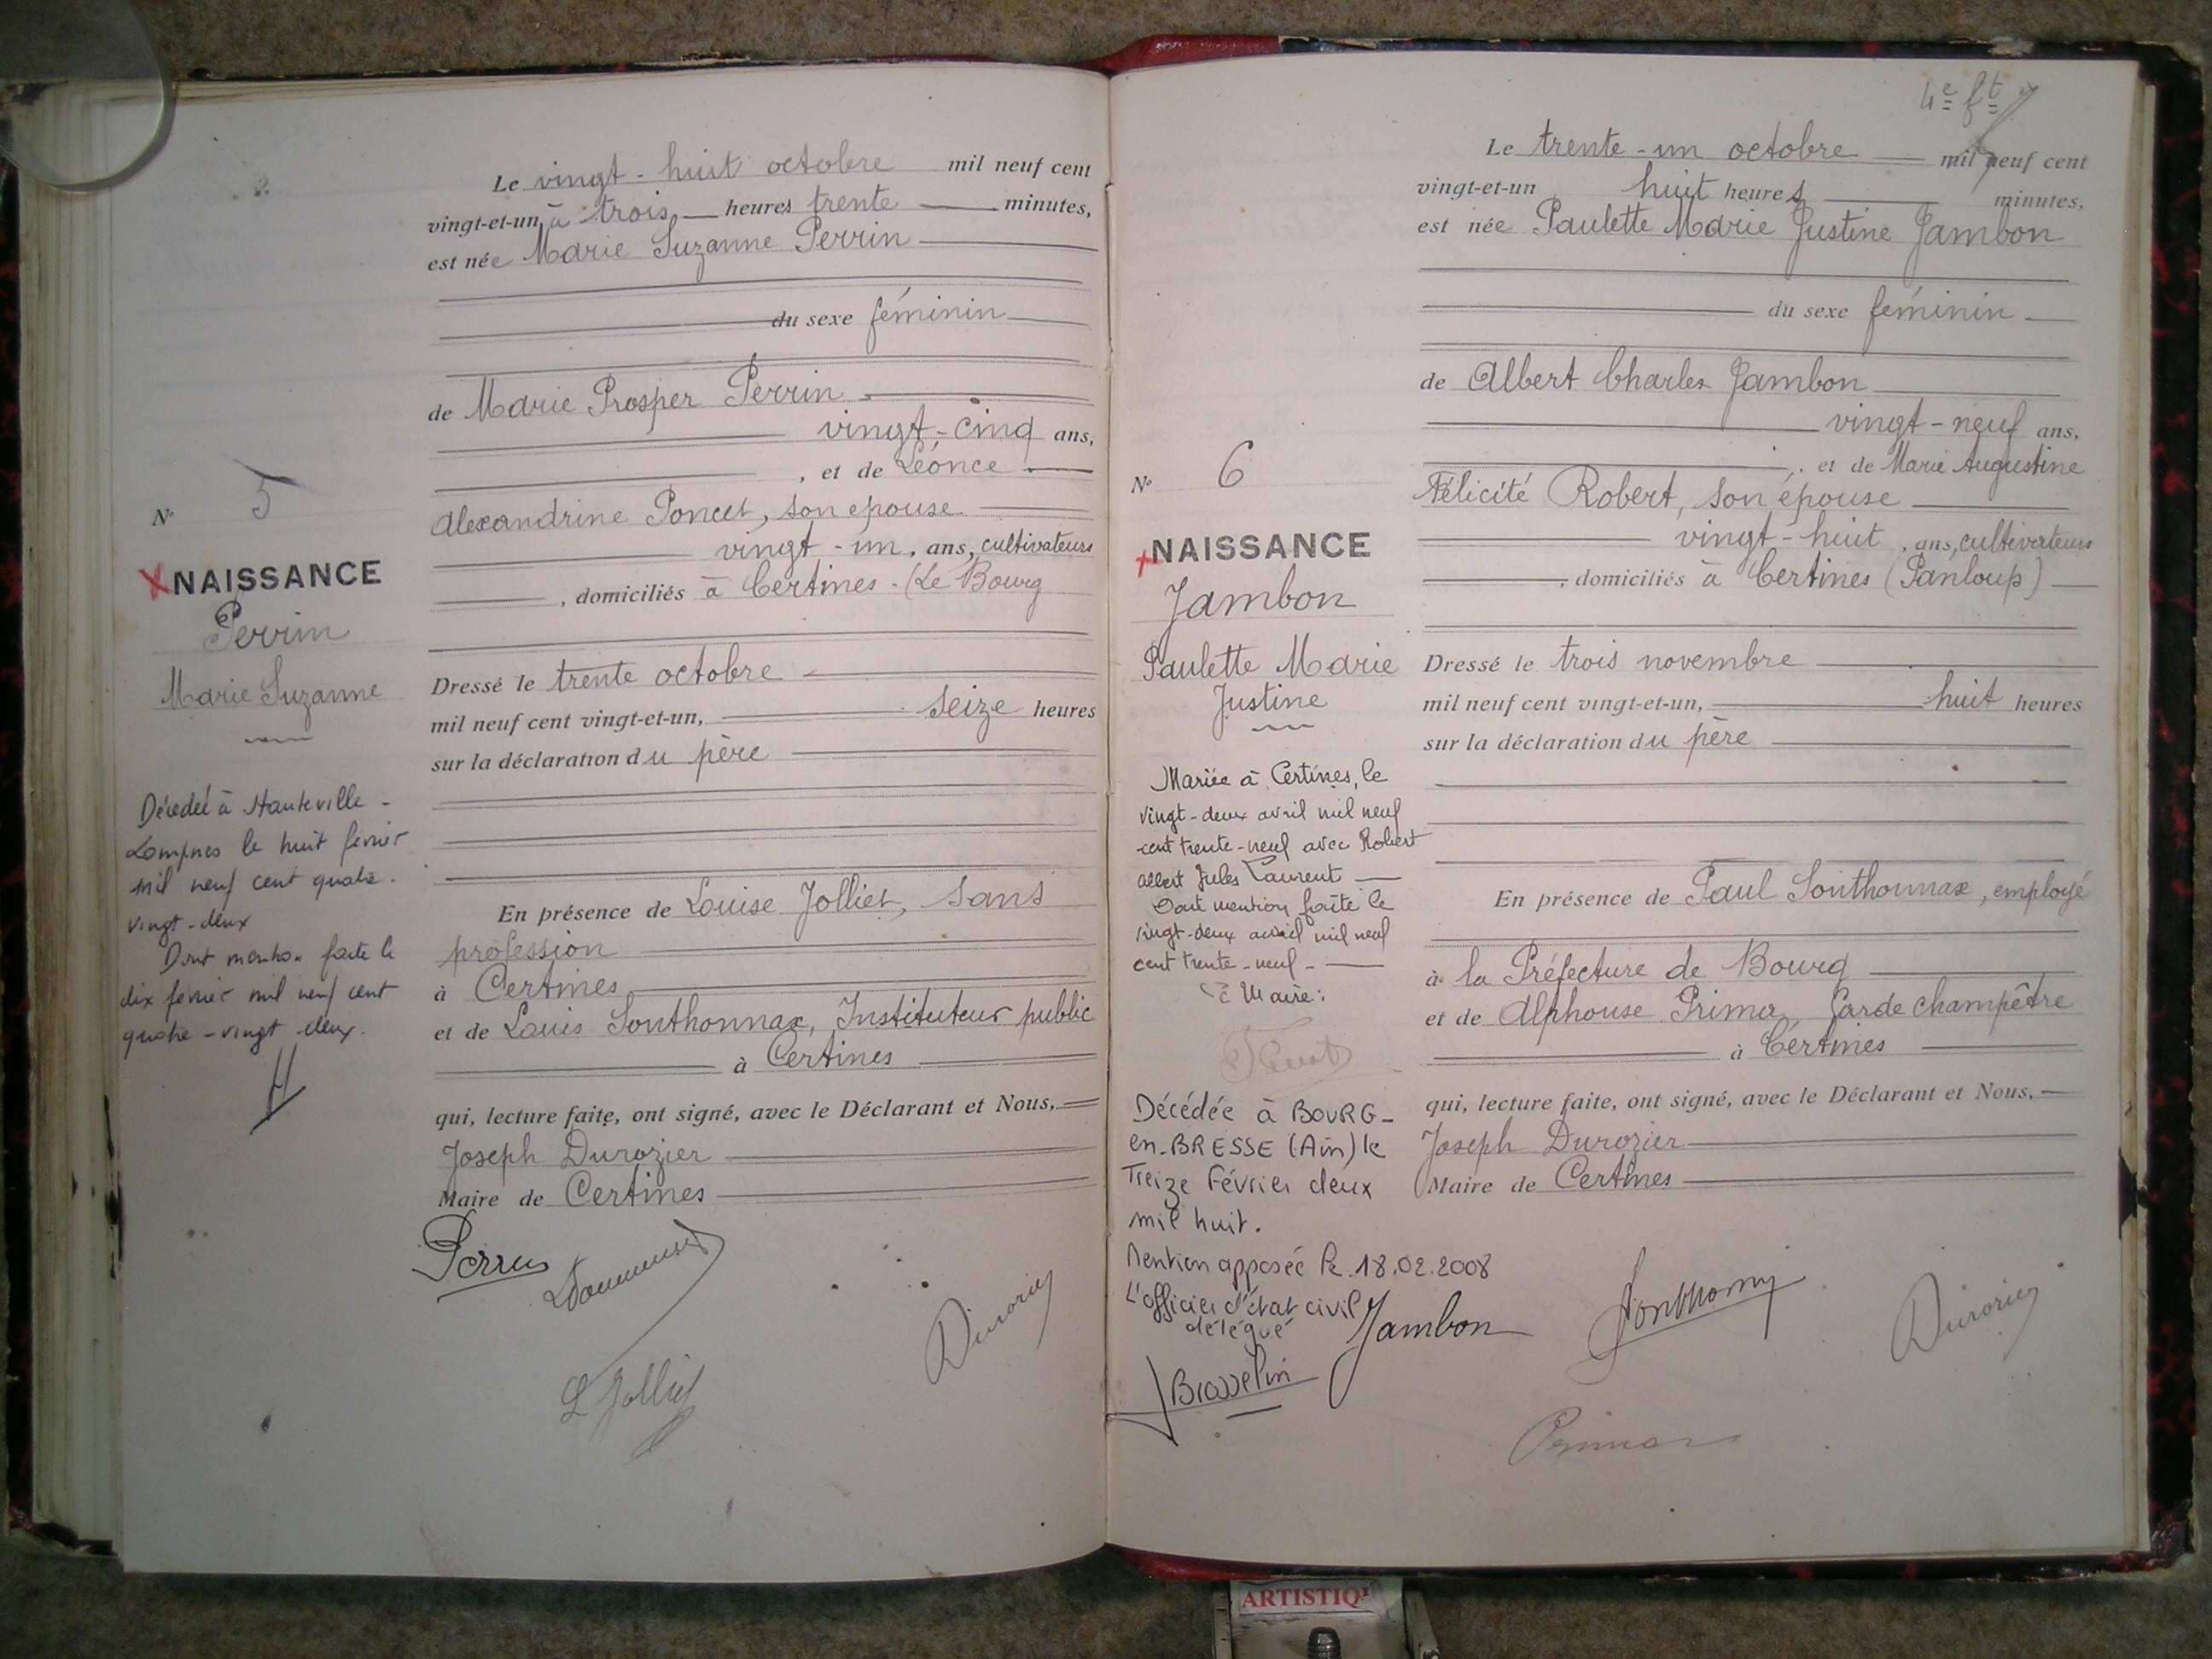 Le vingt-huit octobre mil neuf cent
vingt-et-un, à trois heures trente minutes,
est née Marie Suzanne Perrin
du sexe féminin
de Marie Prosper Perrin
vingt-cinq ans,
, et de Léonce
Alexandrine Poncet, son epouse
vingt-un, ans, cultivateurs
, domiciliés à Certines - (Le Bourg
Dressé le trente octobre
mil neuf cent vingt-et-un, seize heures
sur la déclaration du père
En présence de Louise Jolliet, sans
profession
à Certines
et de Louis Sonthonnax, Instituteur public
à Certines
qui, lecture faite, ont signé, avec le Déclarant et Nous,
Joseph Durozier
Maire de Certines
Perrin
L Jolliet
Durozier
N° 5
NAISSANCE
Perrin
Marie Suzanne
Décédée à Hauteville -
Lompnes le huit février
mil neuf cent quatre.
vingt-deux
Dont mention faite le
dix février mil neuf cent
quatre-vingt deux.
4e ft
Le trente-un octobre mil neuf cent
vingt-et-un huit heures minutes,
est née Paulette Marie Justine Jambon
du sexe féminin
de Albert Charles Jambon
vingt-neuf ans,
, et de Marie Augustine
Félicité Robert, son épouse
vingt-huit, ans, cultivateurs
, domiciliés à Certines (Panloup)
Dressé le trois novembre
mil neuf cent vingt-et-un, huit heures
sur la déclaration du père
En présence de Paul Sonthonnax, employé
à la Préfecture de Bourg
et de Alphonse Primaz, Garde champêtre
à Certines
qui, lecture faite, ont signé, avec le Déclarant et Nous,
Joseph Durozier
Maire de Certines
Jambon
Sonthonnax
Durozier
N° 6
NAISSANCE
Jambon
Paulette Marie
Justine
Mariée à Certines, le
vingt-deux avril mil neuf
cent trente-neuf avec Robert
Albert Jules Laurent
Dont mention faite le
vingt-deux avril mil neuf
cent trente-neuf -
Le Maire:
Décédée à BOURG-
en-BRESSE (Ain) le
Treize Février deux
mil huit.
Mention apposée le 18.02.2008
L'officier d'état civil
délégué
Brosselin
ARTISTIQ